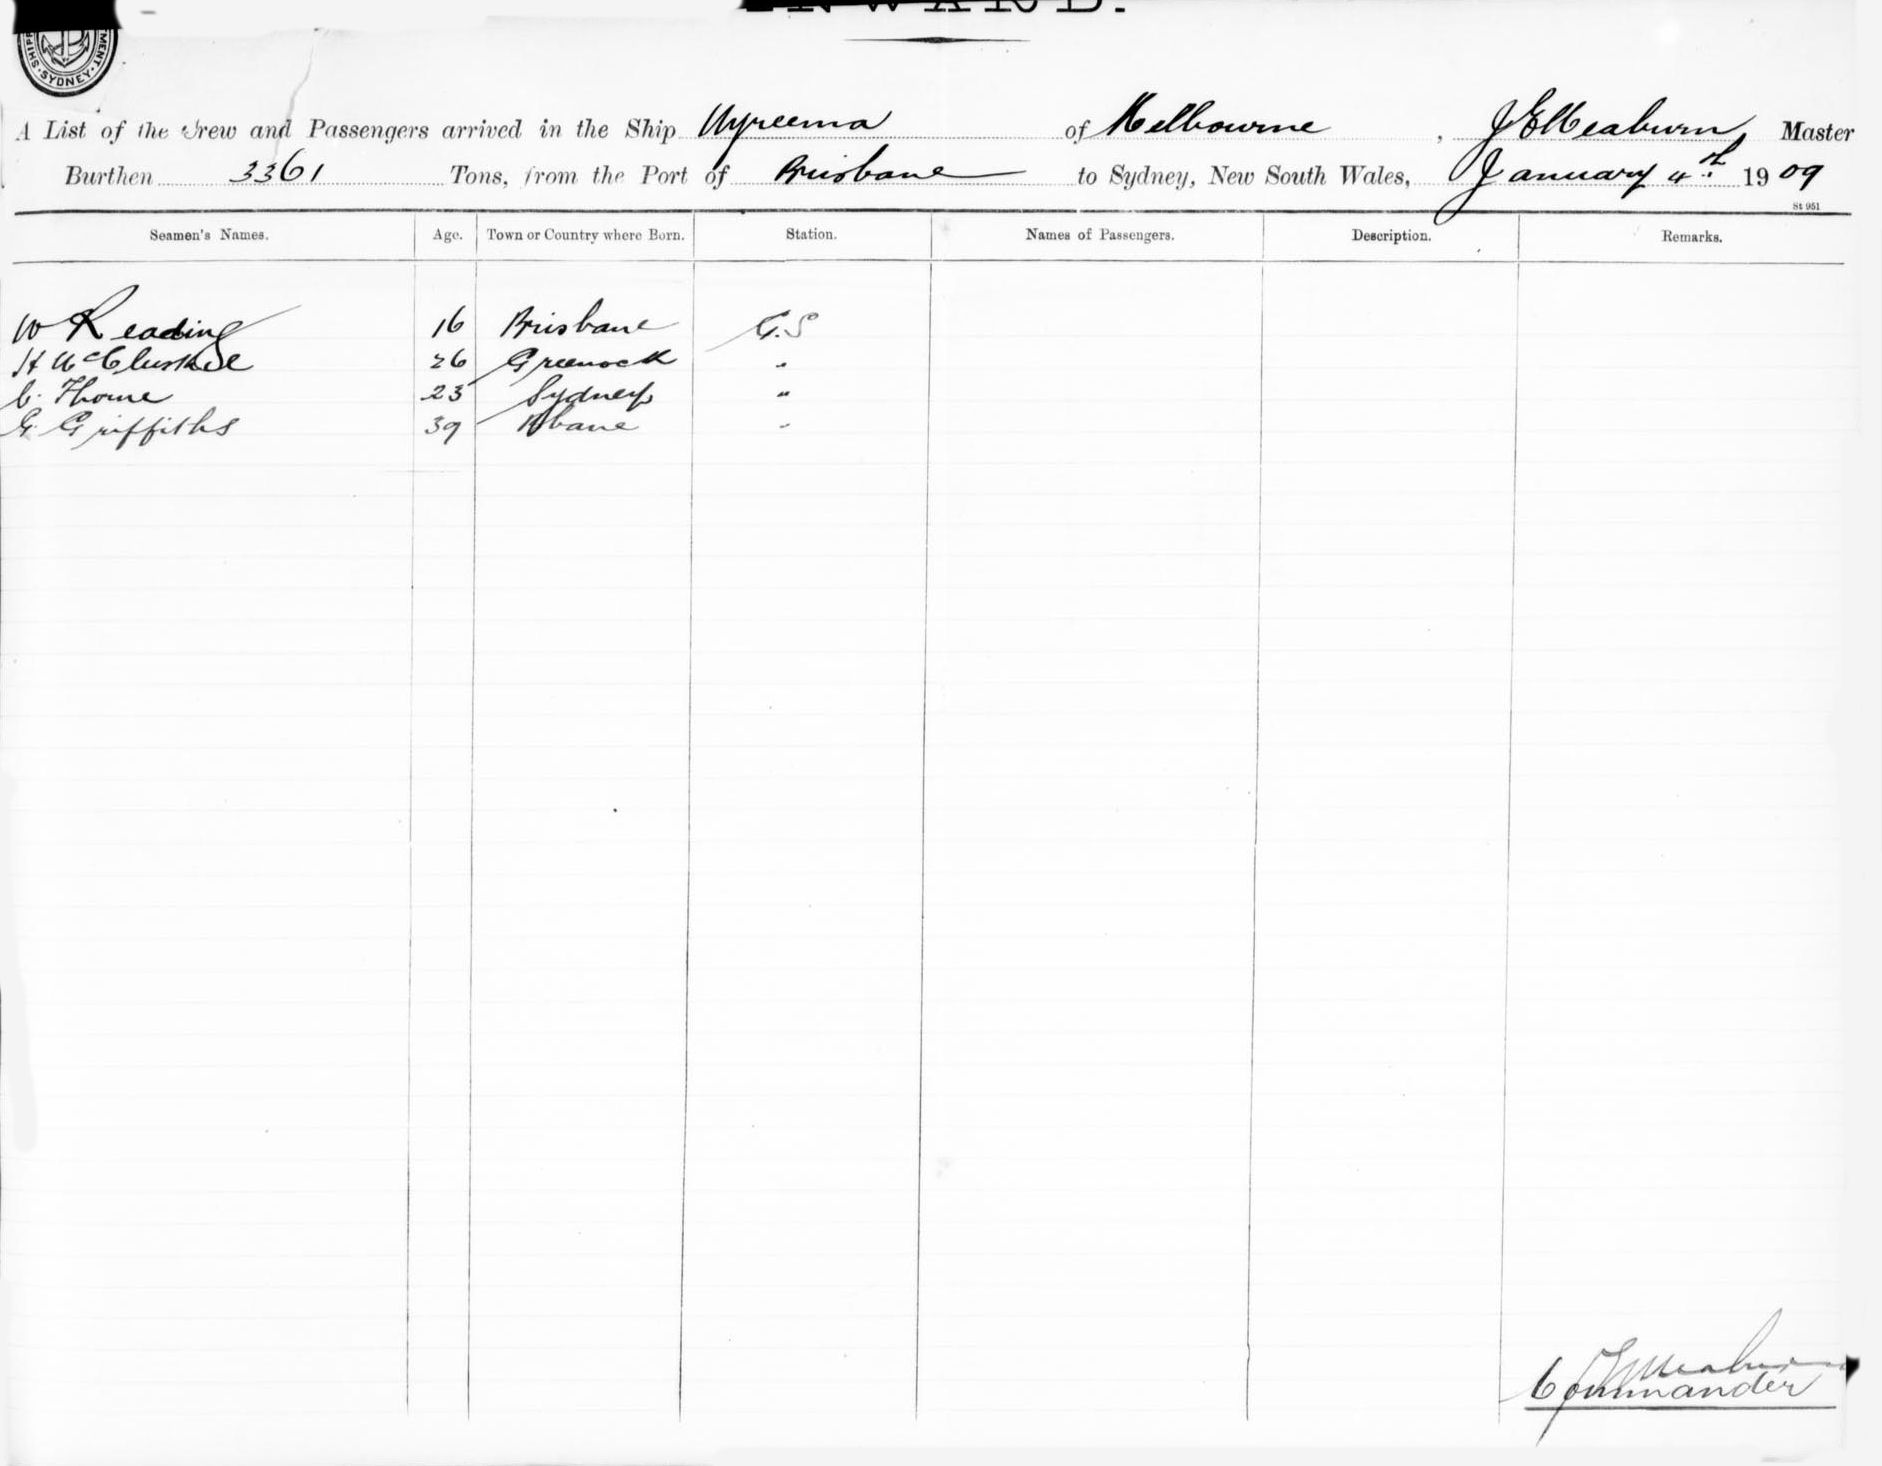 INWARD.
SYDNEY
A List of the Crew and Passengers arrived in the Ship Wyreema of Melbourne, J E Meaburn, Master
Burthen 3361 Tons, from the Port of Brisbane to Sydney, New South Wales, January 4th 1909
St 951
Seamen's Names. Age. Town or Country where Born. Station. Names of Passengers. Description. Remarks.
W Reading 16 Brisbane G.S
H McCluskie 26 Greenock "
C. Thorne 23 Sydney "
G. Griffiths 39 Bbane "
Meaburn
Commander